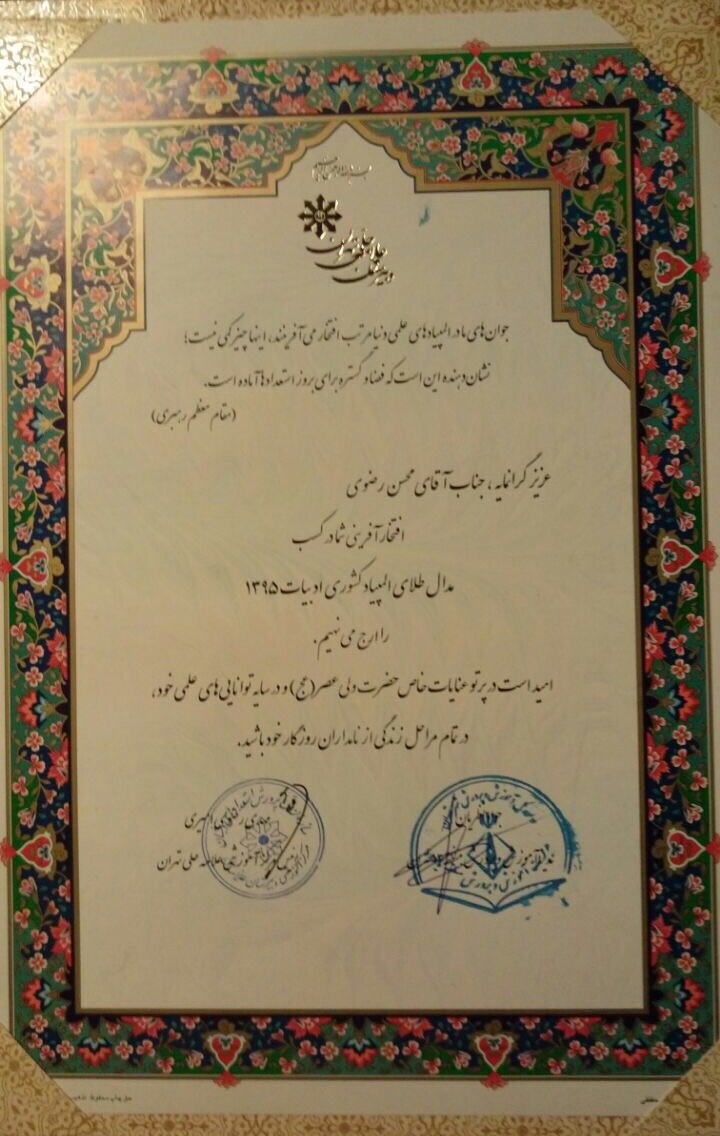 بسم الله الرحمن الرحیم
دبیرستان علامه حلی تهران
جوان‌های ما در المپیادهای علمی دنیا مرتب افتخار می‌آفرینند، اینها چیز کمی نیست؛
نشان دهنده این است که فضا و گستره برای بروز استعدادها آماده است.
(مقام معظم رهبری)
عزیز گرانمایه، جناب آقای محسن رضوی
افتخارآفرینی شما در کسب
مدال طلای المپیاد کشوری ادبیات ۱۳۹۵
را ارج می نهیم.
امید است در پرتو عنایات خاص حضرت ولی عصر(عج) و در سایه توانایی‌های علمی خود،
در تمام مراحل زندگی از نامداران روزگار خود باشید.
علامه حلی تهران
آموزش و پرورش